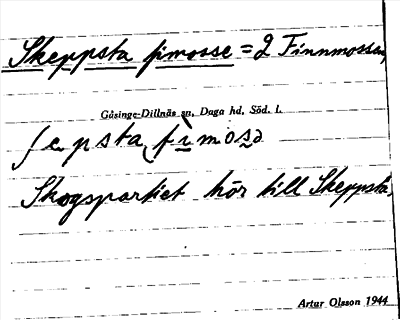 Skeppsta fimosse = 2 Finnmossen,
Gåsinge-Dillnäs sn, Daga hd, Söd. l.
ʃepsta fìmosə
Skogspartiet hör till Skeppsta.
Artur Olsson 1944